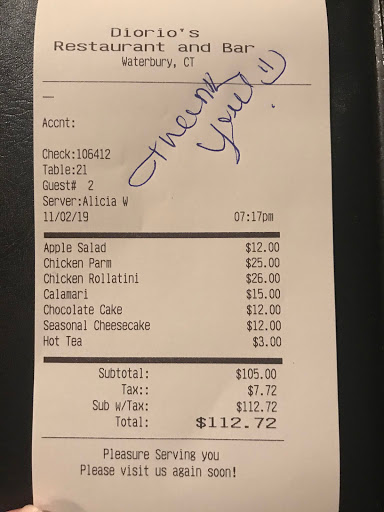 Diorio's
Restaurant and Bar
Waterbury, CT
Thank
you! :)
Accnt:
Check:106412
Table:21
Guest# 2
Server:Alicia W
11/02/19 07:17pm
Apple Salad $12.00
Chicken Parm $25.00
Chicken Rollatini $26.00
Calamari $15.00
Chocolate Cake $12.00
Seasonal Cheesecake $12.00
Hot Tea $3.00
Subtotal: $105.00
Tax:: $7.72
Sub w/Tax: $112.72
Total: $112.72
Pleasure Serving you
Please visit us again soon!